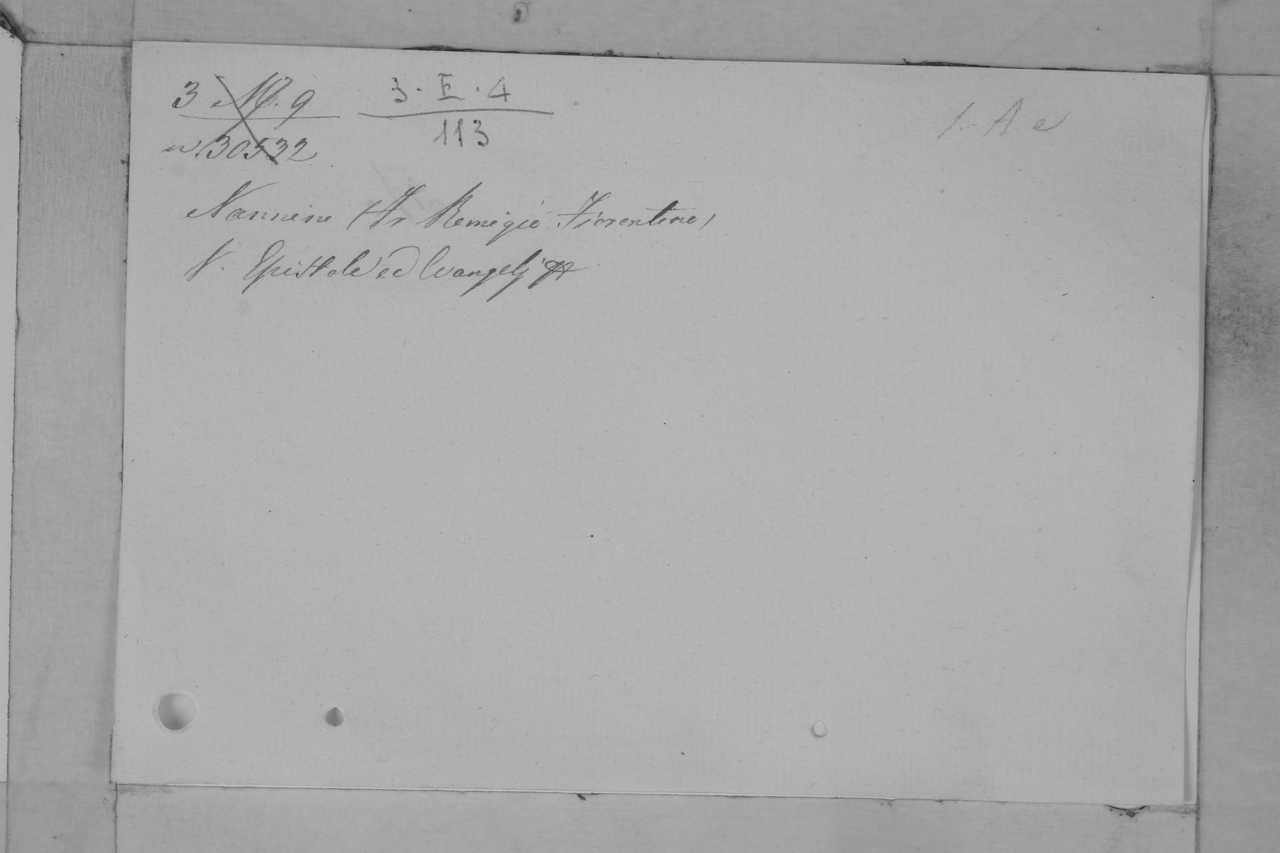 3 M. 9 3. E. 4
n. 30532 113
1- A e
Nannini (Fr Remigio Fiorentino)
V. Epistole ed Evangelj